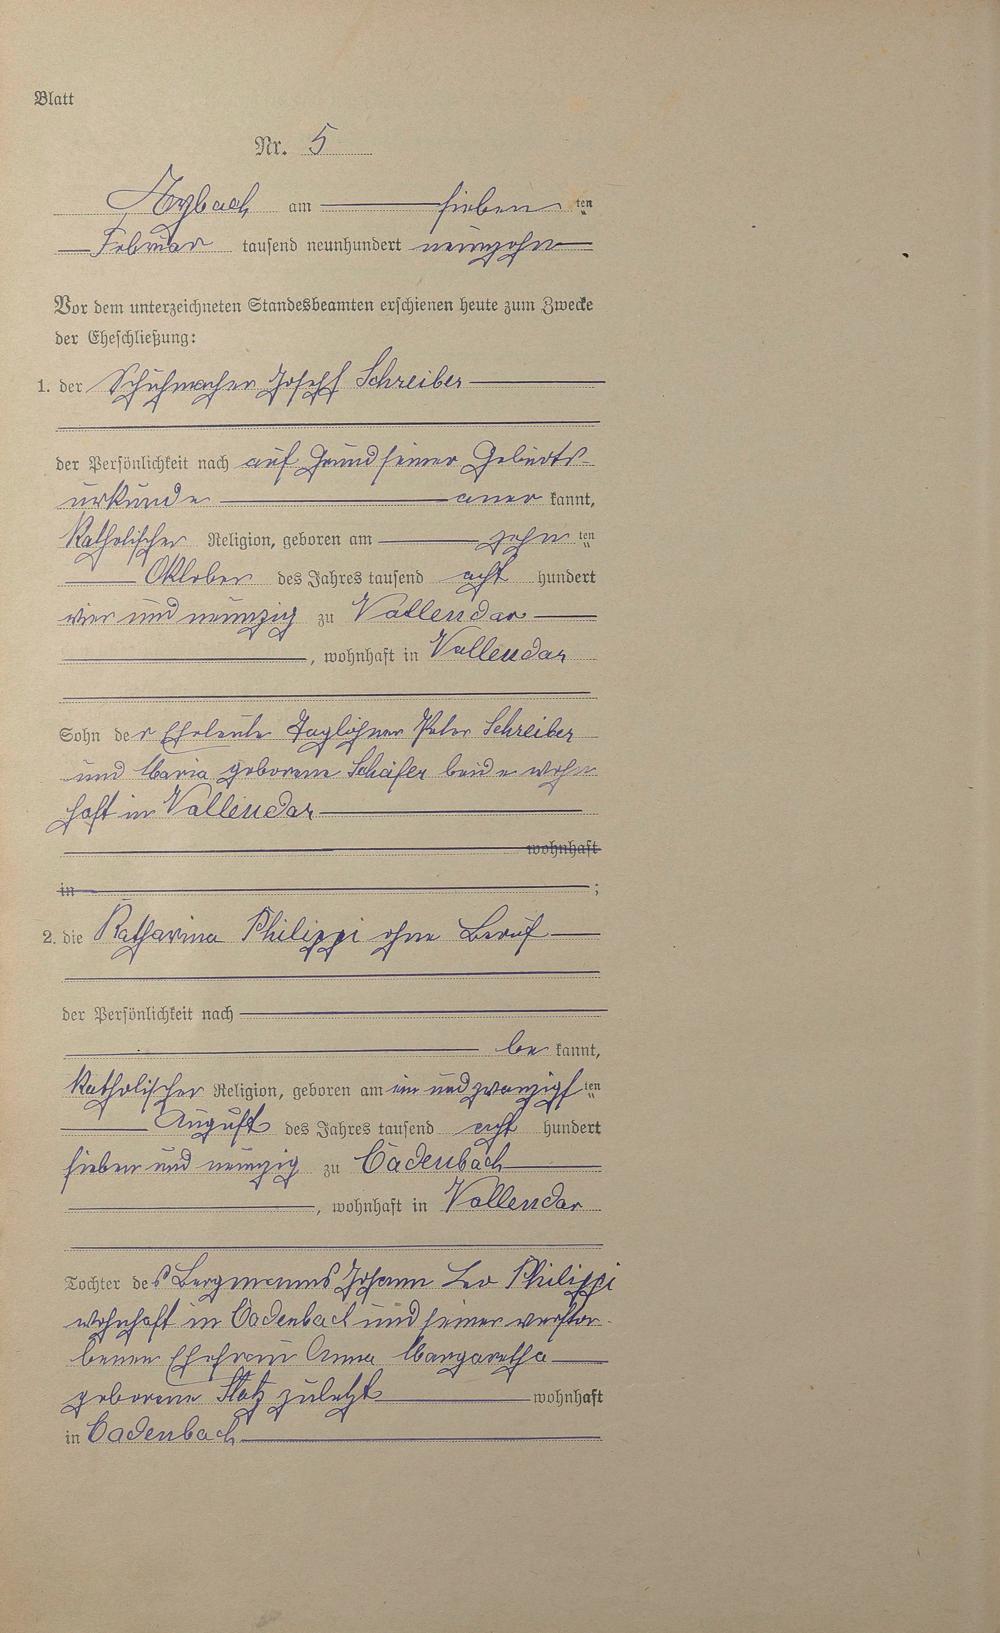 Blatt
Nr. 5
Arzbach am sieben ten
Februar tausend neunhundert neunzehn
Vor dem unterzeichneten Standesbeamten erschienen heute zum Zwecke
der Eheschließung:
1. der Schuhmacher Joseph Schreiber
der Persönlichkeit nach auf Grund seiner Geburts-
urkunde aner kannt,
Katholischer Religion, geboren am zehn ten
Oktober des Jahres tausend acht hundert
vier und neunzig zu Vallendar
, wohnhaft in Vallendar
Sohn der Eheleute Taglöhner Peter Schreiber
und Maria geborene Schäfer beide wohn
haft in Vallendar
wohnhaft
in ;
2. die Katharina Philippi ohne Beruf
der Persönlichkeit nach
be kannt,
Katholischer Religion, geboren am ein und zwanzigs ten
August des Jahres tausend acht hundert
sieben und neunzig zu Cadenbach
, wohnhaft in Vallendar
Tochter des Bergmanns Johann Leo Philippi
wohnhaft in Cadenbach und seiner verstor-
benen Ehefrau Anna Margaretha
geborene zuletzt wohnhaft
in Cadenbach